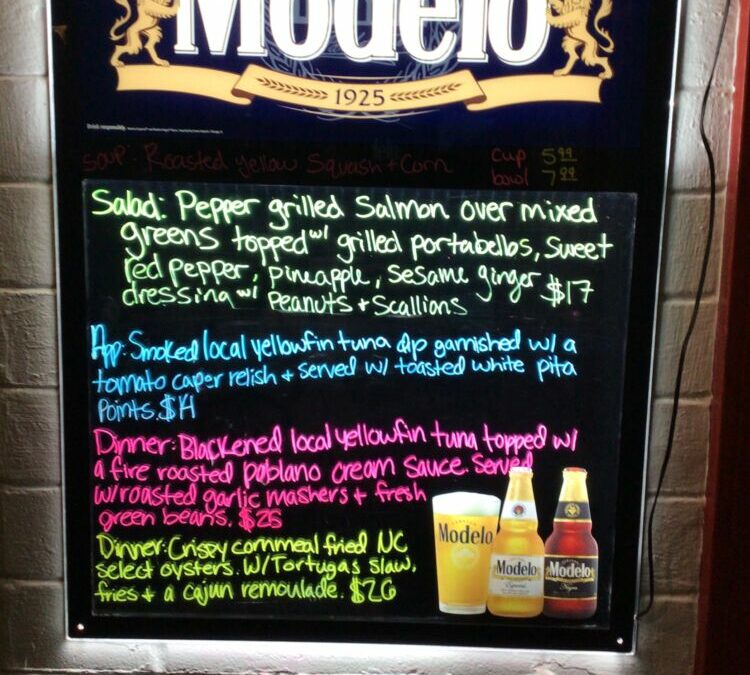 Modelo
1925
Drink responsibly.
Soup: Roasted yellow Squash + Corn cup 5.99
bowl 7.99
Salad: Pepper grilled Salmon over mixed
greens topped w/ grilled portabellos, sweet
red pepper, pineapple, sesame ginger $17
dressing w/ Peanuts + Scallions
App: Smoked local yellowfin tuna dip garnished w/ a
tomato caper relish + served w/ toasted white pita
Points. $14
Dinner: Blackened local yellowfin tuna topped w/
a fire roasted poblano cream sauce. Served
w/ roasted garlic mashers + fresh
green beans. $26
Dinner: Crispy cornmeal fried NC
select oysters. W/ Tortugas slaw,
fries + a cajun remoulade. $26
Modelo
Modelo
Especial
Modelo
Negra